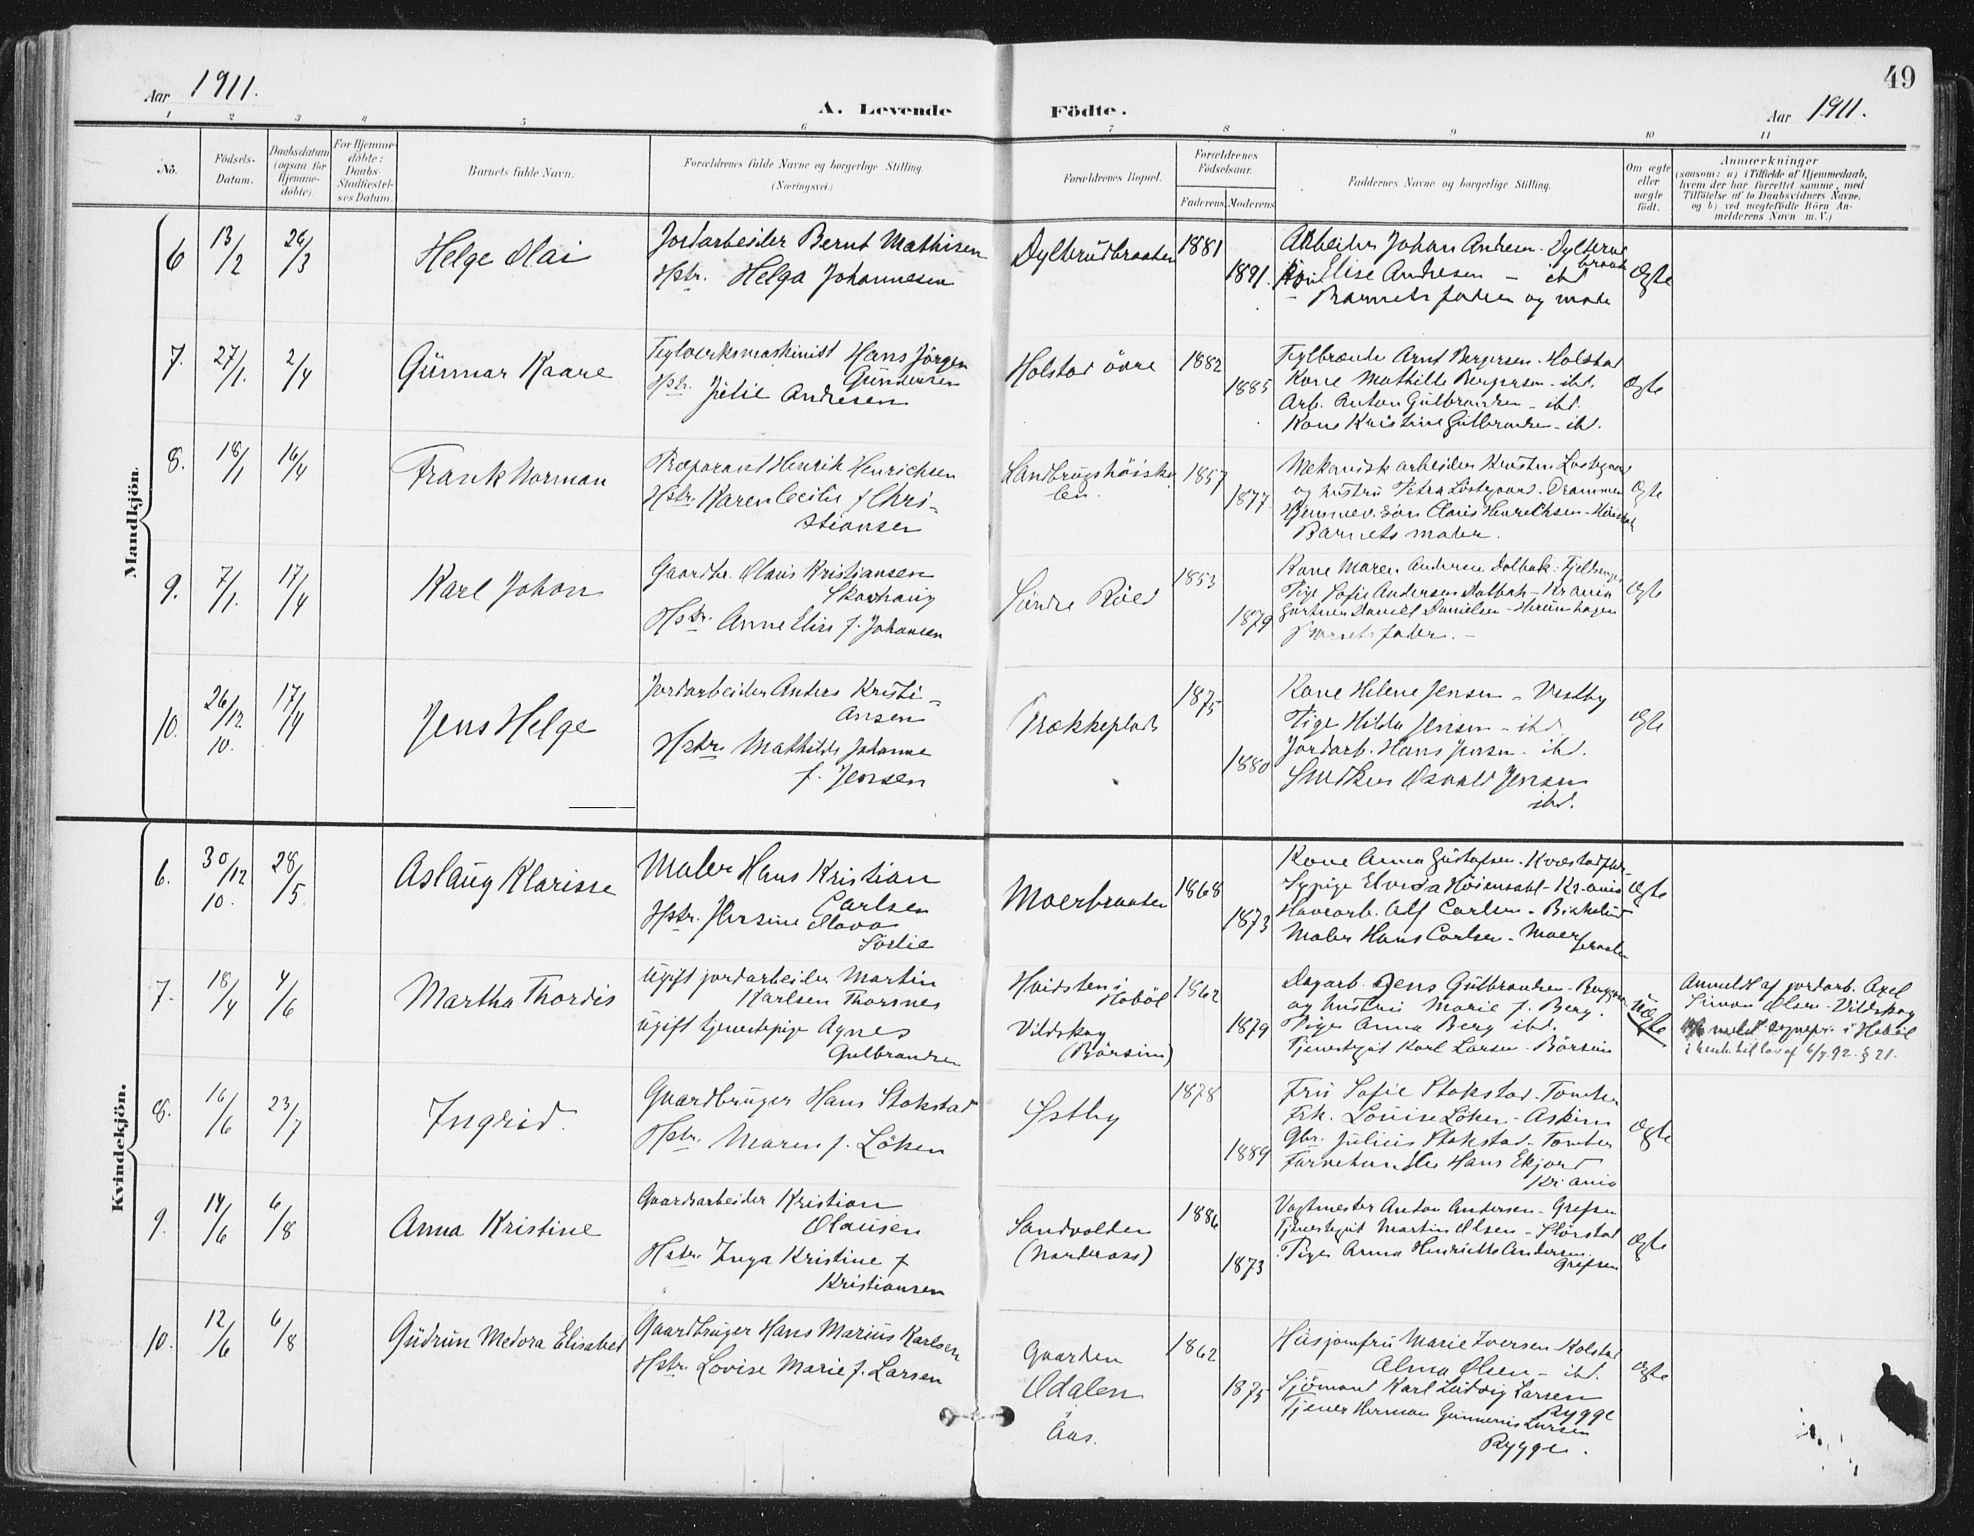 49
Aar 1911.
A. Levende Födte.
Aar 1911.
1 2 3 4 5 6 7 8 9 10 11
No.
Födsels-
Datum.
Daabsdatum
(ogsaa for
Hjemme-
döbte).
For Hjemme-
döbte:
Daabs-
Stadfæstel-
ses Datum.
Barnets fulde Navn.
Forældrenes fulde Navne og borgerlige Stilling.
(Næringsvei.)
Forældrenes Bopæl.
Forældrenes
Födselsaar.
Faderens. Moderens.
Faddernes Navne og borgerlige Stilling.
Om ægte
eller
uægte
födt.
Anmærkninger
(saasom: a) i Tilfælde af Hjemmedaab,
hvem der har forrettet samme, med
Tilföielse af to Daabsvidners Navne,
og b) ved uægtefödte Börn An-
melderens Navn m. V.)
Mandkjön.
6
13/2
26/3
Helge Olai
Jordarbeider Bernt Mathisen
Hstr. Helga Johannesen
Dylterudbraaten
1881
1891.
Arbeider Johan Andresen - Dylterud
braaten
Kone Elise Andresen - ibd
Barnets fader og moder
Ægte
7.
27/1.
2/4
Gunnar Kaare
Teglverksmaskinist Hans Jörgen
Gundersen
Hstr. Julie Andresen
Holstad övre
1882
1885
Teglbrænder Arnt Bergersen - Holstad
Kone Mathilde Bergersen - ibd.
Arb. Anton Gulbrandsen - ibd.
Kone Kristine Gulbrandsen - ibd.
Ægte
8.
18/1
16/4
Frank Norman
Præparant Henrik Henrichsen
Hstr. Karen Cecilie f Chri-
stiansen
Landbrugshöisko
len.
1857
1877
Mekanisk arbeider Karsten
og hustru Petra - Drammen
Hjemmev. sön Claus Henrichsen -
Barnets moder.
Ægte
9.
7/1.
17/4
Karl Johan
Gaardbr. Olaus Kristiansen
Skarhaug
Hstr. Anne Elise f. Johansen
Söndre Röed
1853
1879
Kone Maren Andersen Dalbak -
Pige Sofie Andersen Dalbak - Krania
Gartner Daniel Danielsen -
Barnets fader. -
Ægte
10.
26/12
10.
17/4
Jens Helge
Jordarbeider Anders Kristi-
ansen
Hstr. Mathilde Johanne
f. Jensen
Brækkeplads
1875
1880
Kone Helene Jensen - Vestby
Pige Hilda Jensen - ibd.
Jordarb. Hans Jensen - ibd.
Snedker Osvald Jensen
ibd.
Ægte
Kvindekjön.
6.
30/12
10.
28/5.
Aslaug Klarisse
Maler Hans Kristian
Carlsen
Hstr. Jversine Olava
Sörlie
Moerbraaten
1868
1873
Kone Anna Gustafsen -
Sypige - Kr.ania
Havearb. Alf Carlsen -
Maler Hans Carlsen - Moer
braaten
Ægte
7.
18/4
4/6
Martha Thordis
Ugift jordarbeider Martin
Karlsen Thorsnes
Ugift tjenestepige Agnes
Gulbrandsen
Haidsten i
Hobøl
Vildskog
(Börsum)
1862
1879
Dagarb. Jens Gulbrandsen -
og hustru Marie f. Berg.
Pige Anna Berg ibd.
Tjenestegut Karl Larsen - Börsum
Uægte
Anmeldt af jordarb. Axel
Simon Olsen - Vildskog
meldt sognepr. i Hobøl
i henh. til lov af 6/7 92. § 21.
8.
16/6
23/7
Ingrid.
Gaardbruger Hans Stokstad
Hstr. Maren f. Löken
Østby
1878
1889
Fru Sofie Stokstad - Tomter
Frk. Louise Löken - Askim
Gbr. Julius Stokstad - Tomter
Farvehandler Hans Ekjord
Kr.ania
Ægte
9.
14/6
6/8
Anna Kristine
Gaardsarbeider Kristian
Olausen
Hstr. Inga Kristine f
Kristiansen
Sandvolden
(Norderaas)
1886
1873
Vagtmester Anton Andersen - Grefsen
Tjenestegut Martin Olsen -
Pige Anna Henriette Andersen
Grefsen
Ægte
10.
12/6
6/8
Gudrun Medora Elisabet
Gaardbruger Hans Marius Karlsen
Hstr. Lovise Marie f. Larsen
Gaarden
Odalen
Aas.
1862
1875
Husjomfru Marie Iversen - Holstad
Alma Olsen - ibd.
Sjömand Karl Ludvig Larsen
Rygge
Tjener Herman Gunnerius Larsen
Rygge.
Ægte